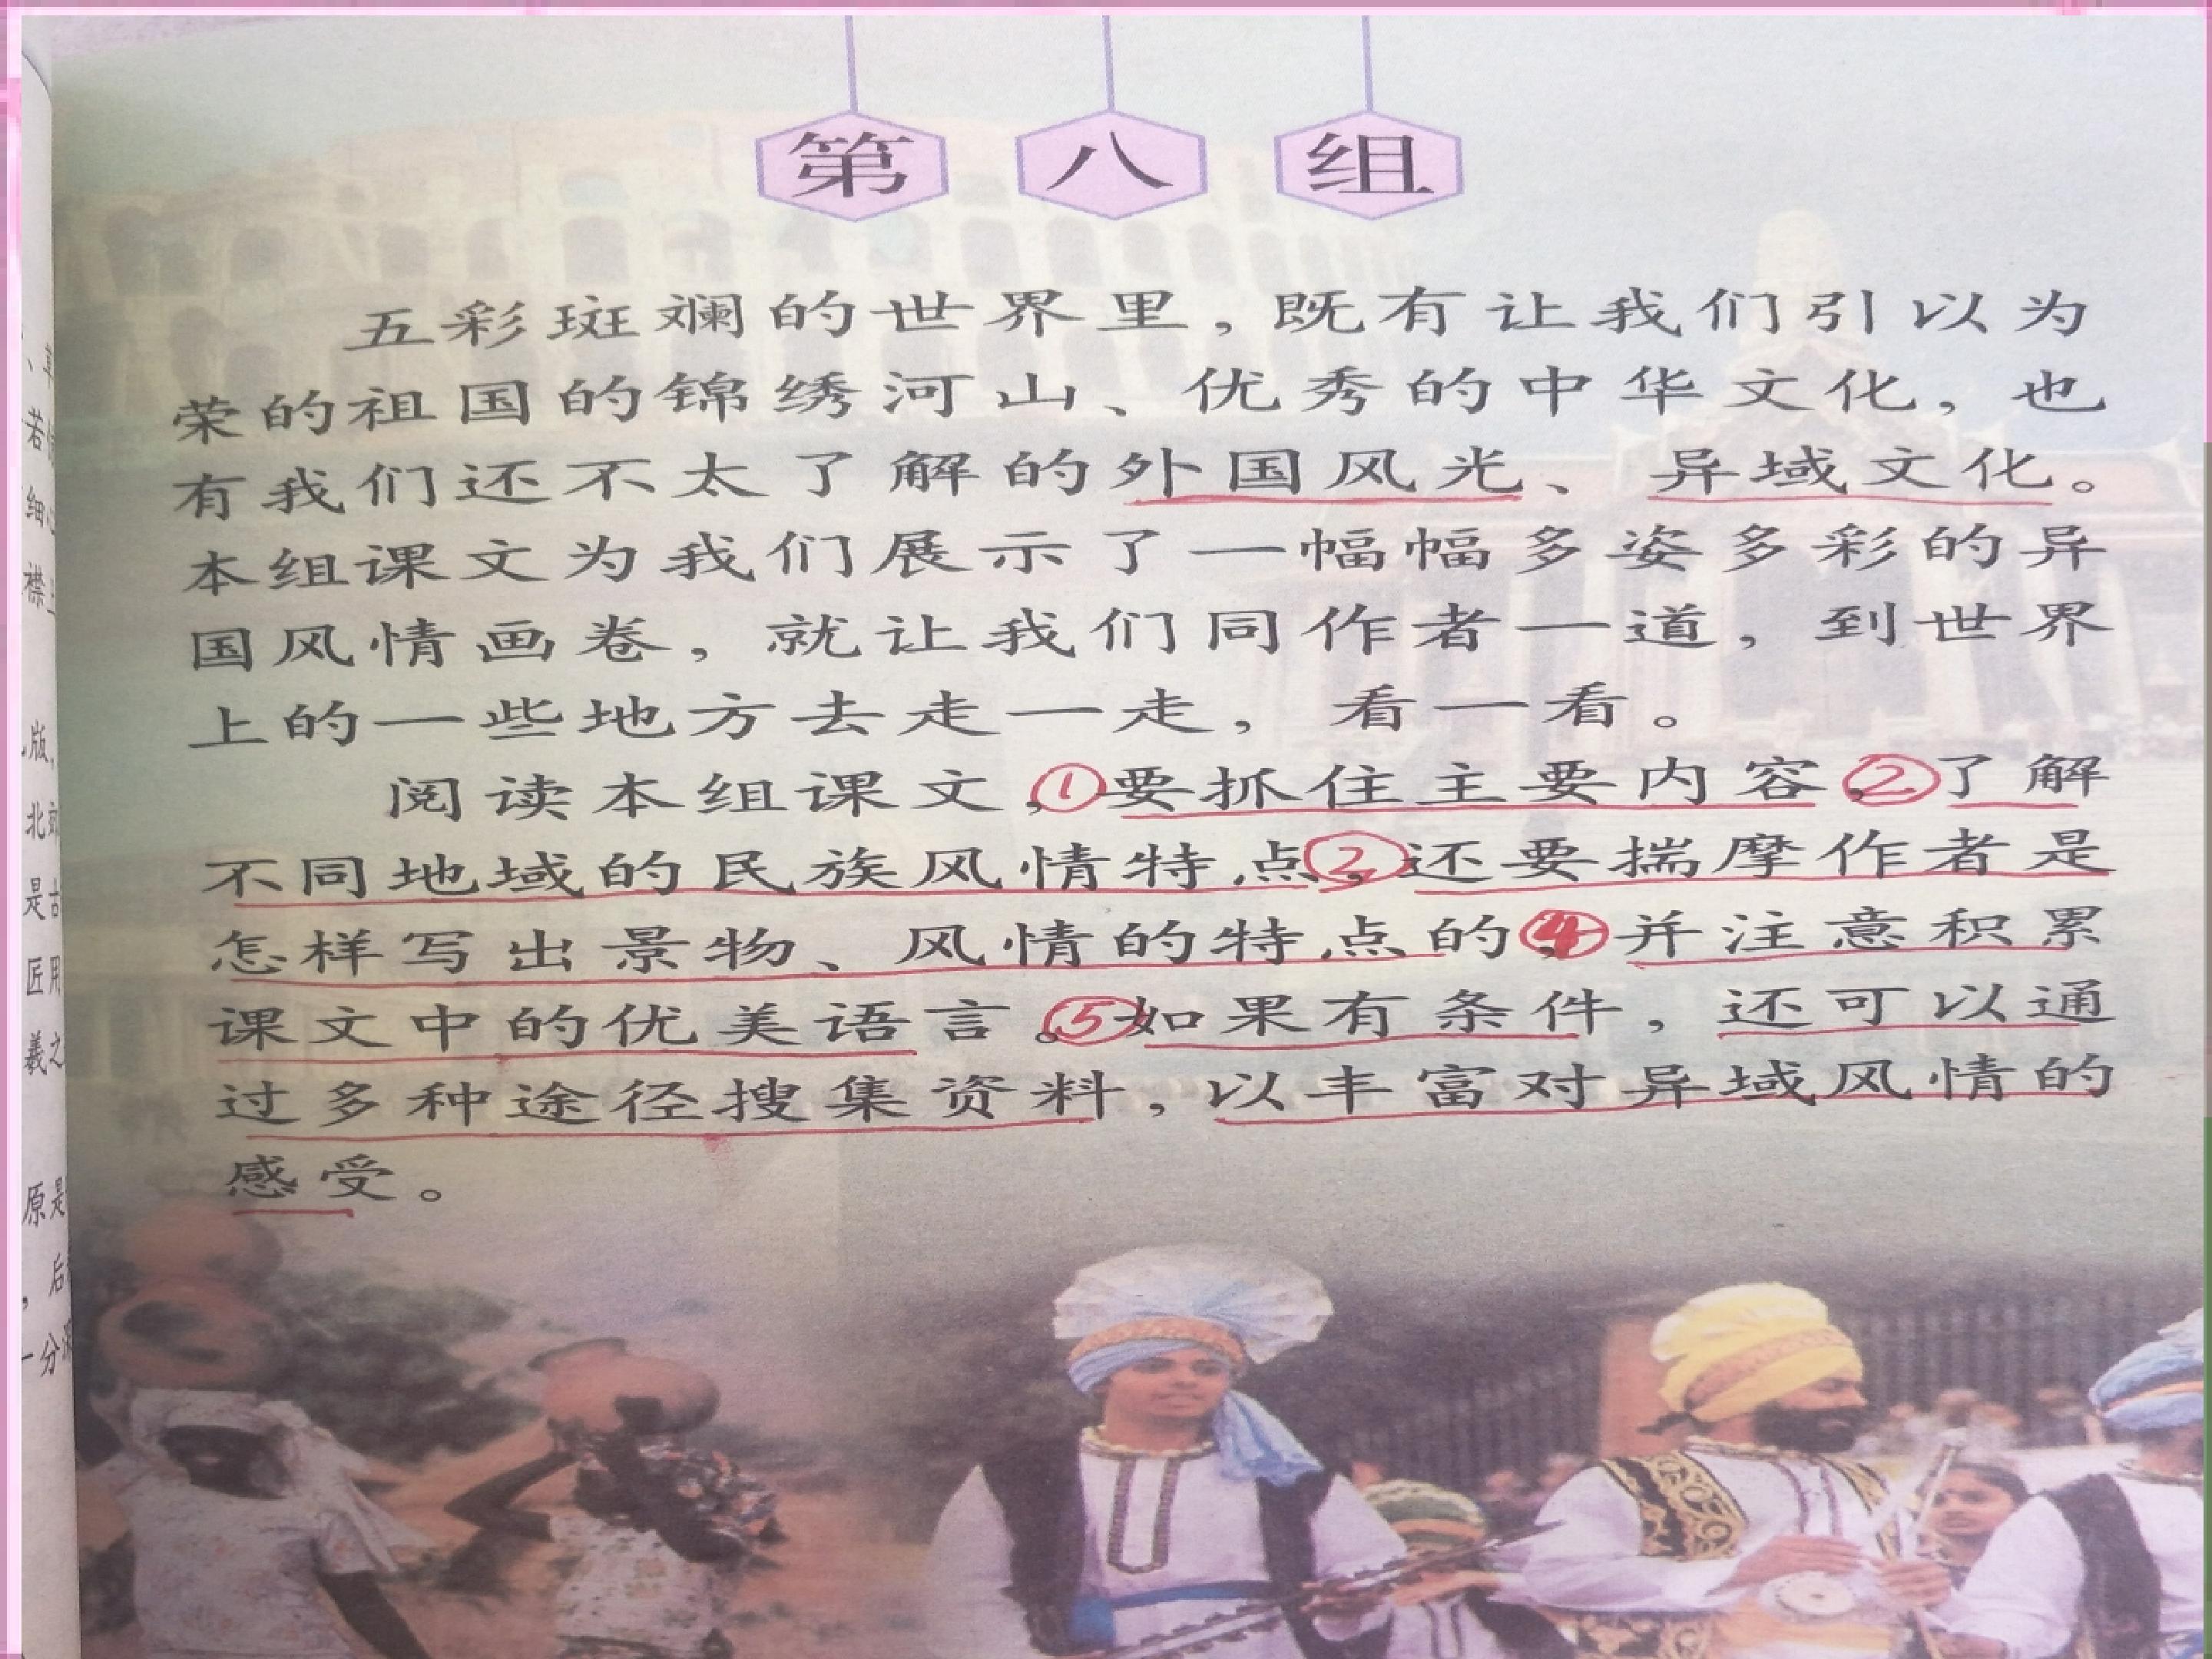 第八组
五彩斑斓的世界里，既有让我们引以为
荣的祖国的锦绣河山、优秀的中华文化，也
有我们还不太了解的外国风光、异域文化。
本组课文为我们展示了一幅幅多姿多彩的异
国风情画卷，就让我们同作者一道，到世界
上的一些地方去走一走，看一看。
阅读本组课文，①要抓住主要内容，②了解
不同地域的民族风情特点，③还要揣摩作者是
怎样写出景物、风情的特点的，④并注意积累
课文中的优美语言。⑤如果有条件，还可以通
过多种途径搜集资料，以丰富对异域风情的
感受。
若
细
襟
版，
北
是
匠用
羲之
原是
，后
一分